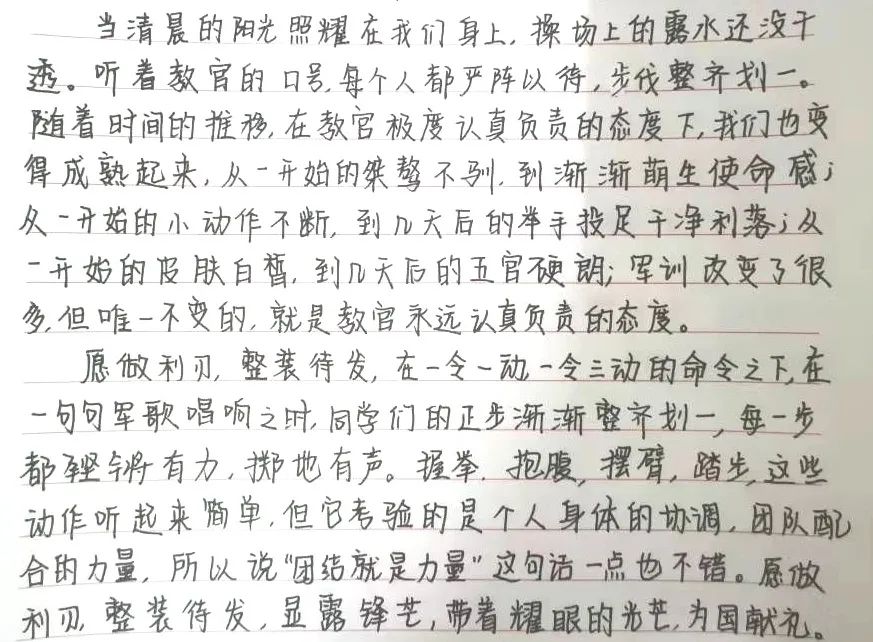 当清晨的阳光照耀在我们身上，操场上的露水还没干
透。听着教官的口号，每个人都严阵以待，步伐整齐划一。
随着时间的推移，在教官极度认真负责的态度下，我们也变
得成熟起来，从一开始的桀骜不驯，到渐渐萌生使命感；
从一开始的小动作不断，到几天后的举手投足干净利落；从
一开始的皮肤白皙，到几天后的五官硬朗；军训改变了很
多，但唯一不变的，就是教官永远认真负责的态度。
愿做利刃，整装待发，在一令一动，一令三动的命令之下，在
一句句军歌唱响之时，同学们的正步渐渐整齐划一，每一步
都铿锵有力，掷地有声。握拳，抱腹，摆臂，踏步，这些
动作听起来简单，但它考验的是个人身体的协调，团队配
合的力量，所以说“团结就是力量”这句话一点也不错。愿做
利刃，整装待发，显露锋芒，带着耀眼的光芒，为国献礼。